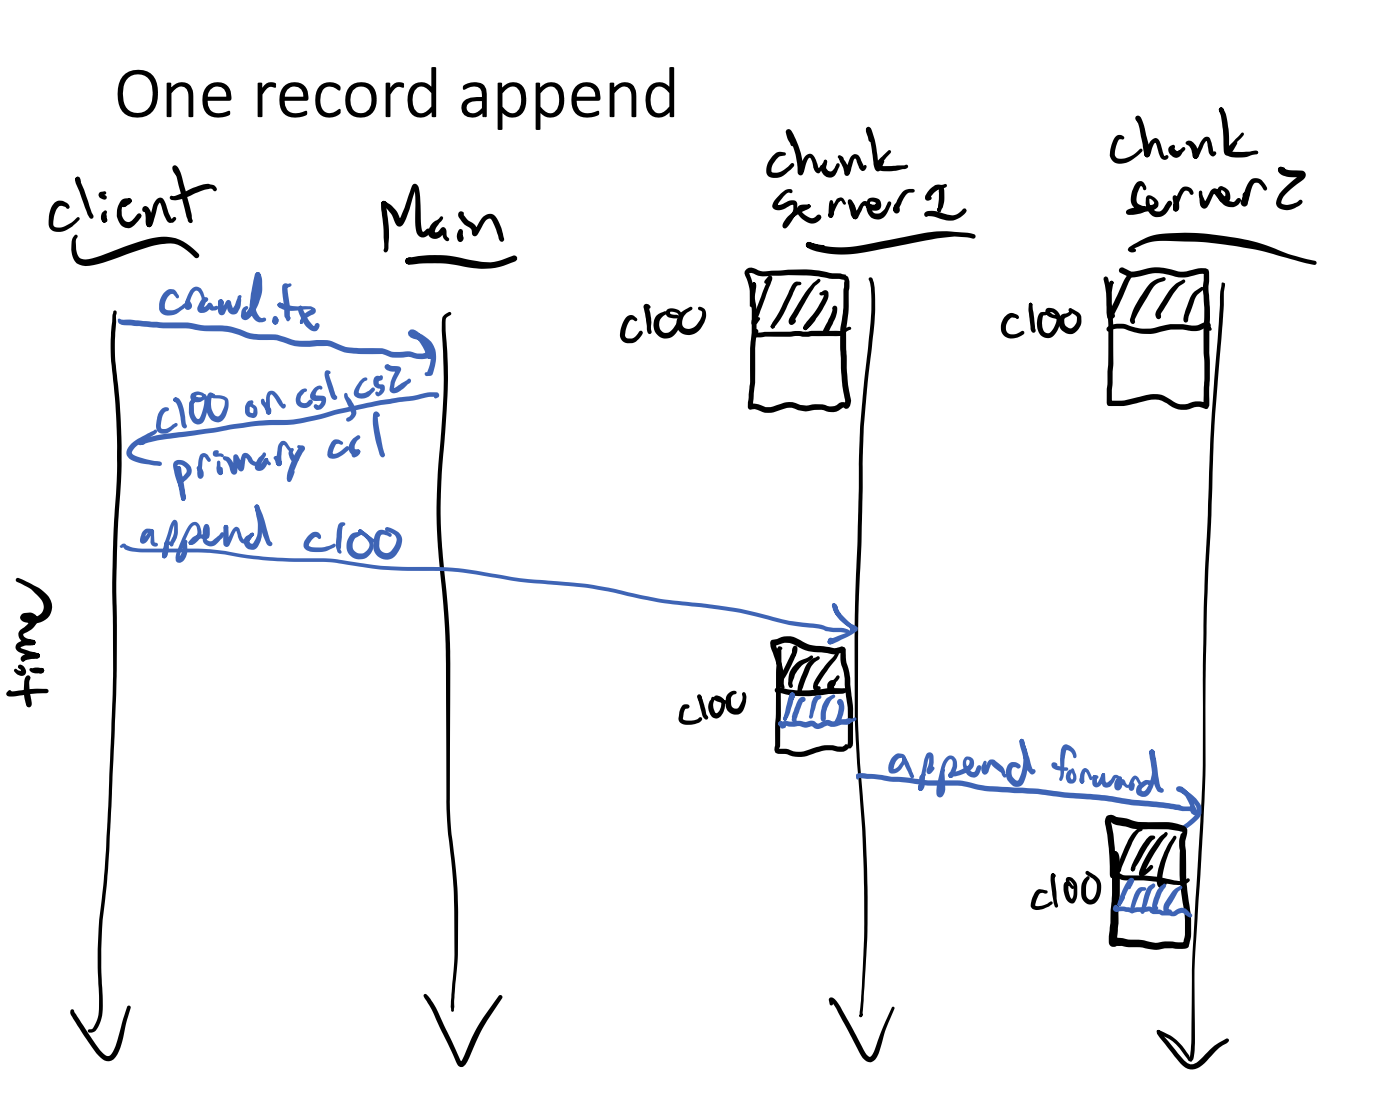 One record append
client
Main
chunk
server 1
chunk
server 2
c100
c100
c100 on cs1, cs2
primary cs1
append c100
time
c100
append forward
c100